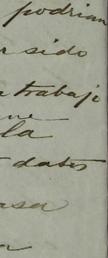 podrian
sido
trabaje
que
la
dates
asa